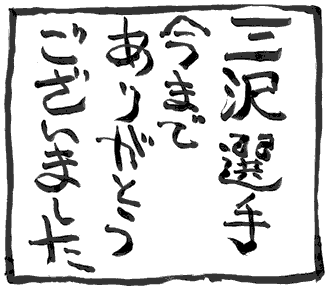 三沢選手
今まで
ありがとう
ございました。